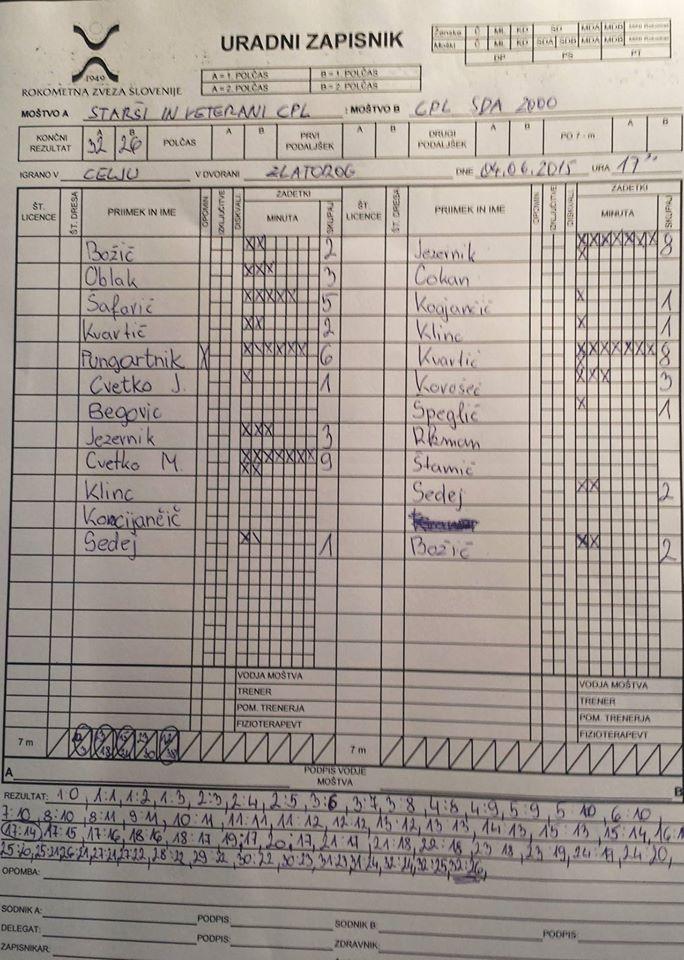 1949
ROKOMETNA ZVEZA SLOVENIJE
URADNI ZAPISNIK
A = 1. POLČAS B = 1. POLČAS
A = 2. POLČAS B = 2. POLČAS
Ženske ML KD SD MDA MDB
Moški ML KD SDA SDB MDA MDB
DP PS PT
MOŠTVO A STARŠI IN VETERANI CPL : MOŠTVO B CPL SDA 2000
KONČNI REZULTAT A 32 B 26 POLČAS A B PRVI PODALJŠEK A B DRUGI PODALJŠEK A B PO 7 - m A B
IGRANO V CELJU V DVORANI ZLATOROG DNE 04.06.2015 URA 17
ŠT. LICENCE ŠT. DRESA PRIIMEK IN IME OPOMIN IZKLJUČITVE DISKVAL. ZADETKI MINUTA SKUPAJ ŠT. LICENCE ŠT. DRESA PRIIMEK IN IME OPOMIN IZKLJUČITVE DISKVAL. ZADETKI MINUTA SKUPAJ
Božič XX 2 Jezernik XXXXXXX X 8
Oblak XXX 3 Cokan
Šafarič XXXXX 5 X 1
Kvartič XX 2 Klinc X 1
Pungartnik X XXXXXX 6 Kvartič XXXXXXX X 8
Cvetko J. X 1 Korošec XXX 3
Begovic Špeglič X 1
Jezernik XXX 3 Rkman
Cvetko M. XXXXXXX XX 9 Štamič
Klinc Sedej XX 2
Koncijančič
Sedej X\ 1 Božič XX 2
VODJA MOŠTVA VODJA MOŠTVA
TRENER TRENER
POM. TRENERJA POM. TRENERJA
FIZIOTERAPEVT FIZIOTERAPEVT
7 m 7 m
A PODPIS VODJE MOŠTVA B
REZULTAT: 1:0, 1:1, 1:2, 1:3, 2:3, 2:4, 2:5, 3:6, 3:7, 3:8, 4:8, 4:9, 5:9, 5 10, 6:10,
7:10, 8:10, 8:11, 9 11, 10:11, 11:11, 11:12, 12 12, 13:12, 13 13, 14 13, 15 13, 15:14, 16:14
17:14, 17:15, 17:16, 18:16, 18:17, 19:17, 20:17, 21:17, 21:18, 22:18, 23 18, 23 19, 24:19, 24:20,
25:20, 25:21, 26:21, 27:21, 27:22, 28:22, 29:22, 30:22, 30:23, 31:23, 31:24, 32:24, 32:25, 32:26,
OPOMBA:
SODNIK A: PODPIS: SODNIK B PODPIS:
DELEGAT: PODPIS: ZDRAVNIK:
ZAPISNIKAR: